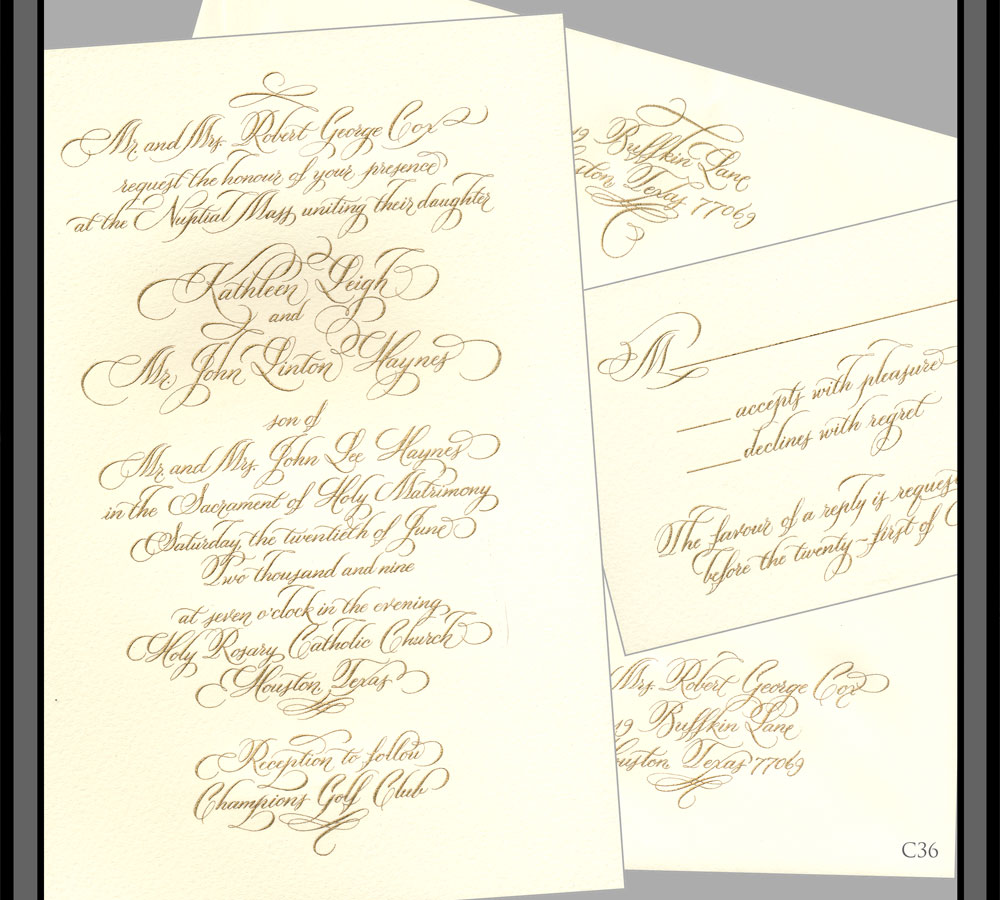 Mr. and Mrs. Robert George Cox
request the honour of your presence
at the Nuptial Mass uniting their daughter
Kathleen Leigh
and
Mr. John Linton Haynes
son of
Mr. and Mrs. John Lee Haynes
in the Sacrament of Holy Matrimony
Saturday, the twentieth of June
Two thousand and nine
at seven o'clock in the evening
Holy Rosary Catholic Church
Houston, Texas
Reception to follow
Champions Golf Club
Buffkin Lane
Texas 77069
M
accepts with pleasure
declines with regret
The favour of a reply is
before the twenty-first of
Mrs. Robert George Cox
19 Buffkin Lane
Texas 77069
C36